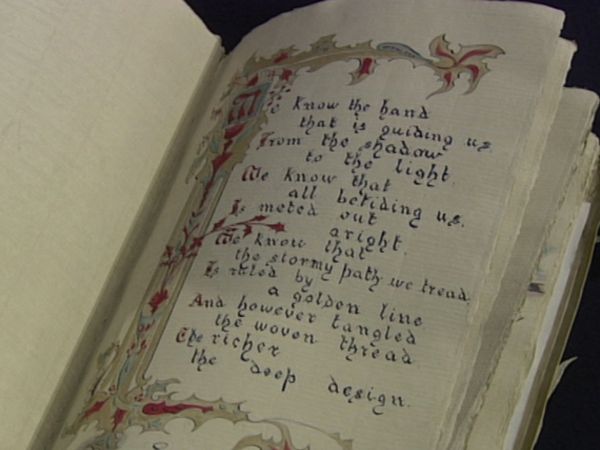 We know the hand
that is guiding us
From the shadow
to the light.
We know that
all betiding us.
Is meted out
aright.
We know that
the stormy path we tread
Is ruled by
a golden line
And however tangled
the woven thread
The richer
the deep design.